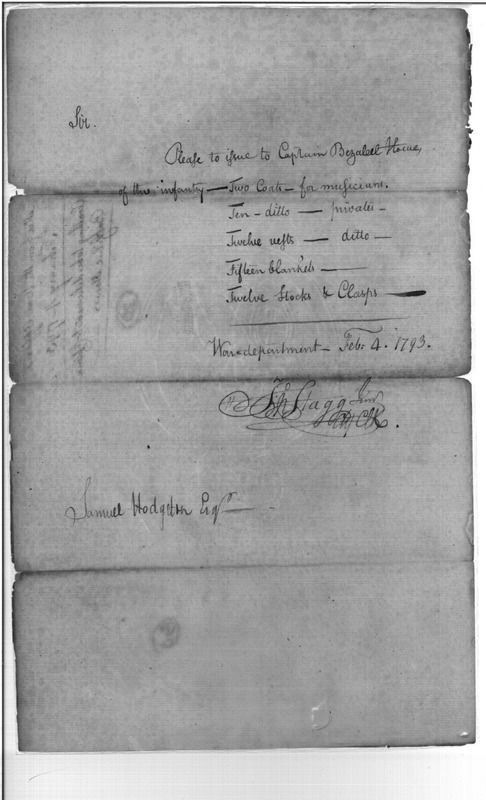 Sir.
Please to issue to Captain Bezaleel Howe,
of the infantry — Two Coats — for musicians.
Ten — ditto — privates —
Twelve vests — ditto —
Fifteen blankets —
Twelve Stocks & Clasps —
War department — Feb: 4. 1793.
Jn Stagg Junr
Ch Clk.
Samuel Hodgdon Esqr